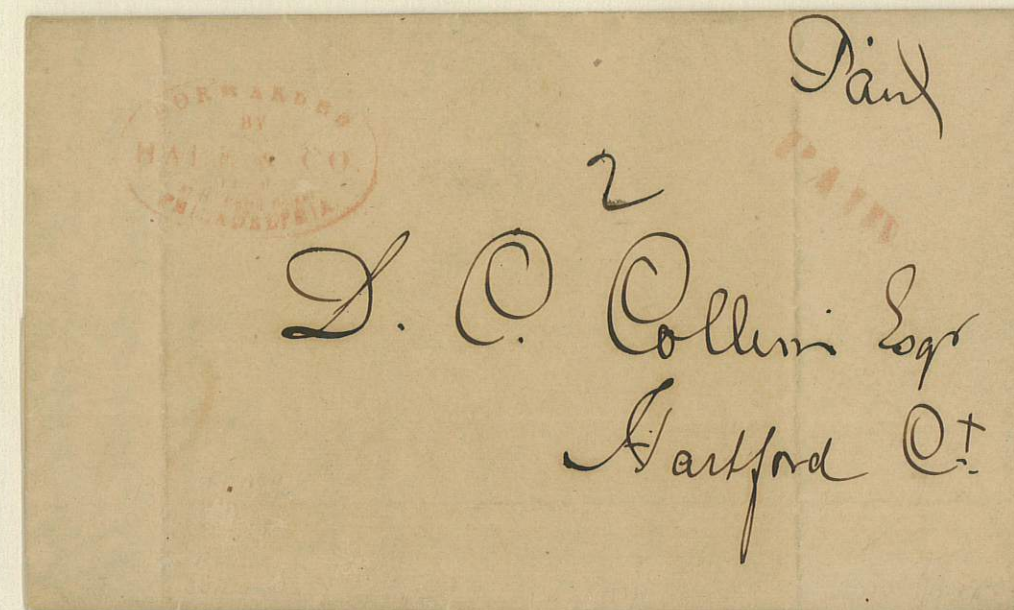 Paid
FORWARDED
BY
HALE & CO
PHILADELPHIA
PAID
2
D. C. Collins Esqr
Hartford Ct.